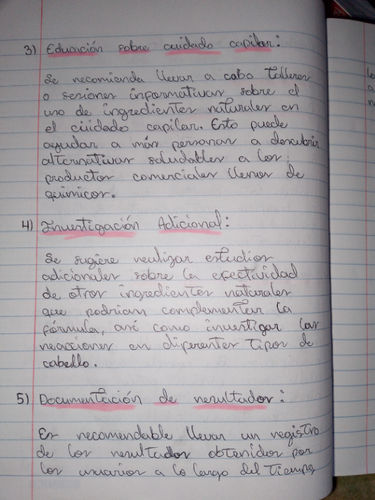 3) Educación sobre cuidado capilar:
Se recomienda llevar a cabo talleres
o sesiones informativas sobre el
uso de ingredientes naturales en
el cuidado capilar. Esto puede
ayudar a más personas a descubrir
alternativas saludables a los
productos comerciales llenos de
químicos.
4) Investigación Adicional:
Se sugiere realizar estudios
adicionales sobre la efectividad
de otros ingredientes naturales
que podrían complementar la
fórmula, así como investigar las
reacciones en diferentes tipos de
cabello.
5) Documentación de resultados:
Es recomendable llevar un registro
de los resultados obtenidos por
los usuarios a lo largo del tiempo